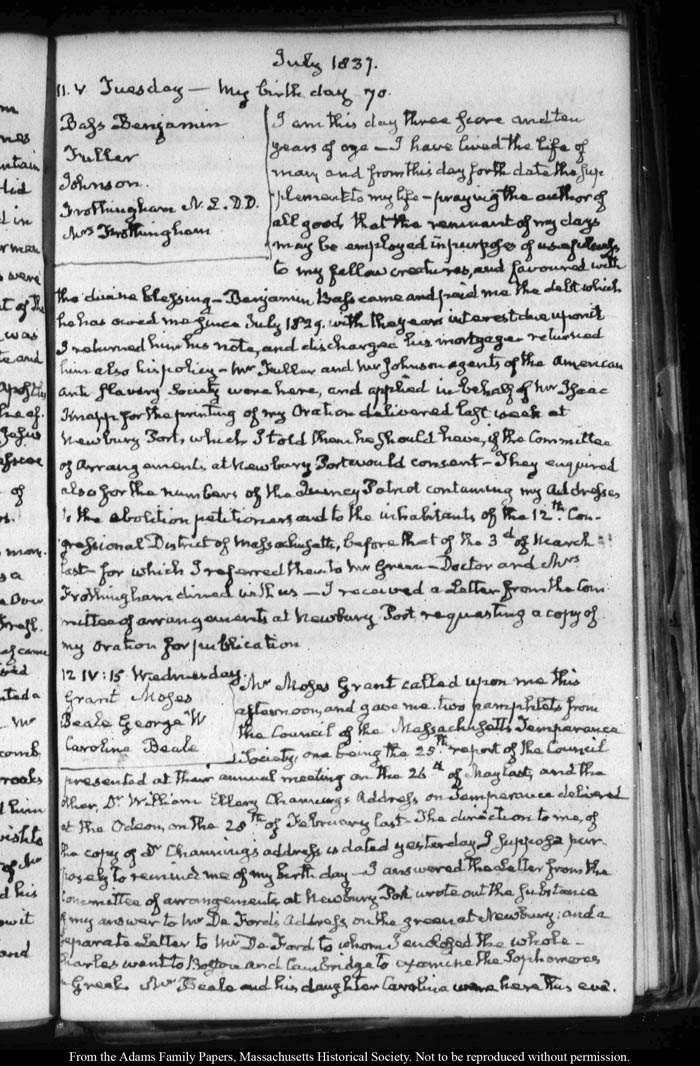 July 1837.
11. V Tuesday — My birth day 70.
Bass Benjamin
Fuller
Johnson.
Frothingham N. L. D.D.
Mrs Frothingham
I am this day three score and ten
years of age — I have lived the life of
man, and from this day forth date the sup
plement to my life — praying the author of
all good, that the remnant of my days
may be employed in purposes of usefulness
to my fellow creatures, and favoured with
the divine blessing — Benjamin Bass came and paid me the debt which
he has owed me since July 1829. with the years interest due upon it
I returned him his note, and discharged his mortgage — returned
him also his policy — Mr Fuller and Mr Johnson agents of the American
Anti Slavery Society were here, and applied in behalf of Mr Isaac
Knapp for the printing of my Oration delivered last week at
Newbury Port, which I told them he should have, if the Committee
of Arrangements at Newbury Port would consent — They enquired
also for the numbers of the Quincy Patriot containing my Addresses
to the abolition petitioners and to the inhabitants of the 12th. Con-
gressional District of Massachusetts, before that of the 3d of March
last — for which I referred them to Mr Green — Doctor and Mrs
Frothingham dined with us — I received a Letter from the Com
mittee of arrangements at Newbury Port, requesting a copy of
my Oration for publication
12 IV:15 Wednesday.
Grant Moses
Beale George W
Caroline Beale
Mr Moses Grant called upon me this
afternoon, and gave me two pamphlets from
the Council of the Massachusetts Temperance
Society, one being the 25th. report of the Council
presented at their annual meeting on the 26th of May last, and the
other, Dr. William Ellery Channing's Address on Temperance delivered
at the Odeon, on the 28th of February last — The direction to me, of
the copy of Dr Channing's address is dated yesterday, I suppose pur-
posely to remind me of my birth day — I answered the Letter from the
Committee of arrangements at Newbury Port wrote out the substance
of my answer to Mr De Ford's Address, on the green at Newbury; and a
separate Letter to Mr De Ford to whom I enclosed the whole —
Charles went to Boston and Cambridge to examine the Sophomores
in Greek. Mr Beale and his daughter Carolina were here this eve.
From the Adams Family Papers, Massachusetts Historical Society. Not to be reproduced without permission.